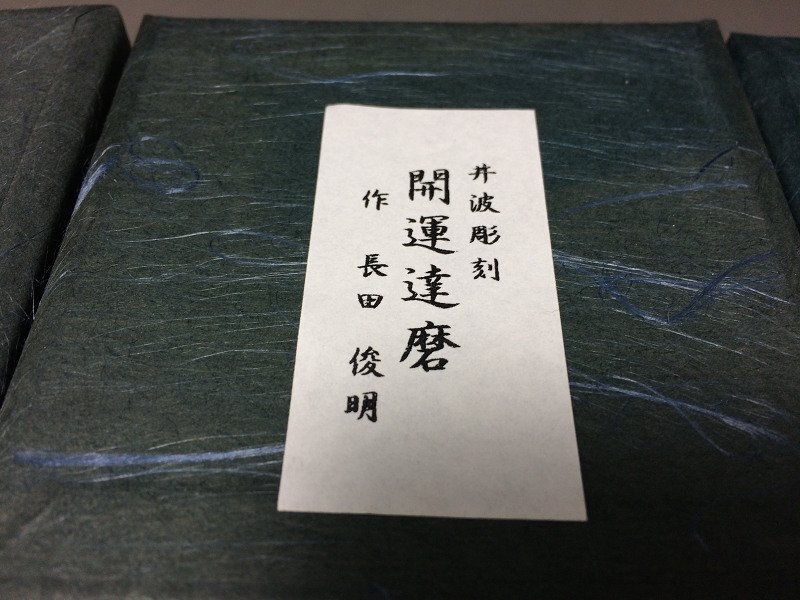 井波彫刻
開運達磨
作 長田 俊明